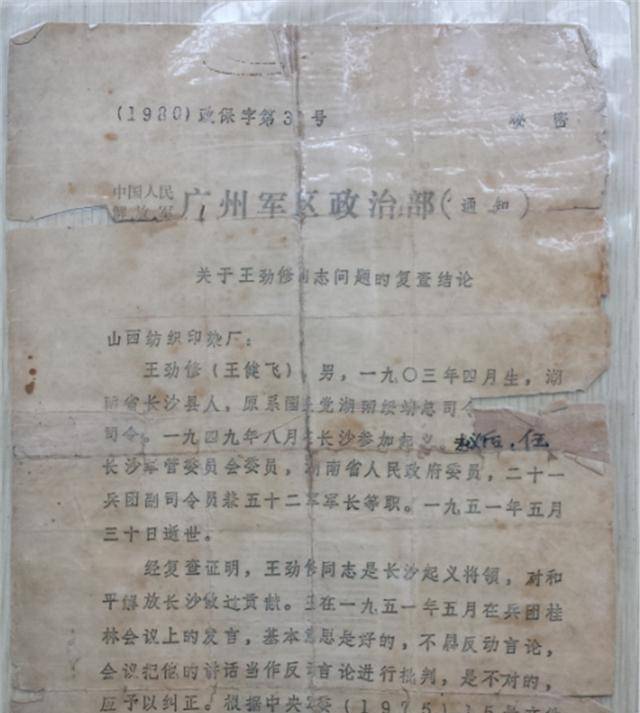 (1980)政保字第3 号 秘密
中国人民
解放军 广州军区政治部(通知)
关于王劲修同志问题的复查结论
山西纺织印染厂:
王劲修(王健飞) 男,一九〇三年四月生,湖
南省长沙县人,原系国 党湖南绥靖总司令 一
司令。一九四九年八月 长沙参加起义。 后,任
长沙军管委员会委员,湖南省人民政府委员,二十一
兵团副司令员兼五十二军军长等职。一九五一年五月
三十日逝世。
经复查证明,王劲修同志是长沙起义将领,对和
平解放长沙做过贡献。王在一九五一年五月在兵团桂
林会议上的发言,基本意思是好的,不是反动言论,
会议把他的讲话当作反动言论进行批判,是不对的,
应予以纠正。根据中央 (1975)